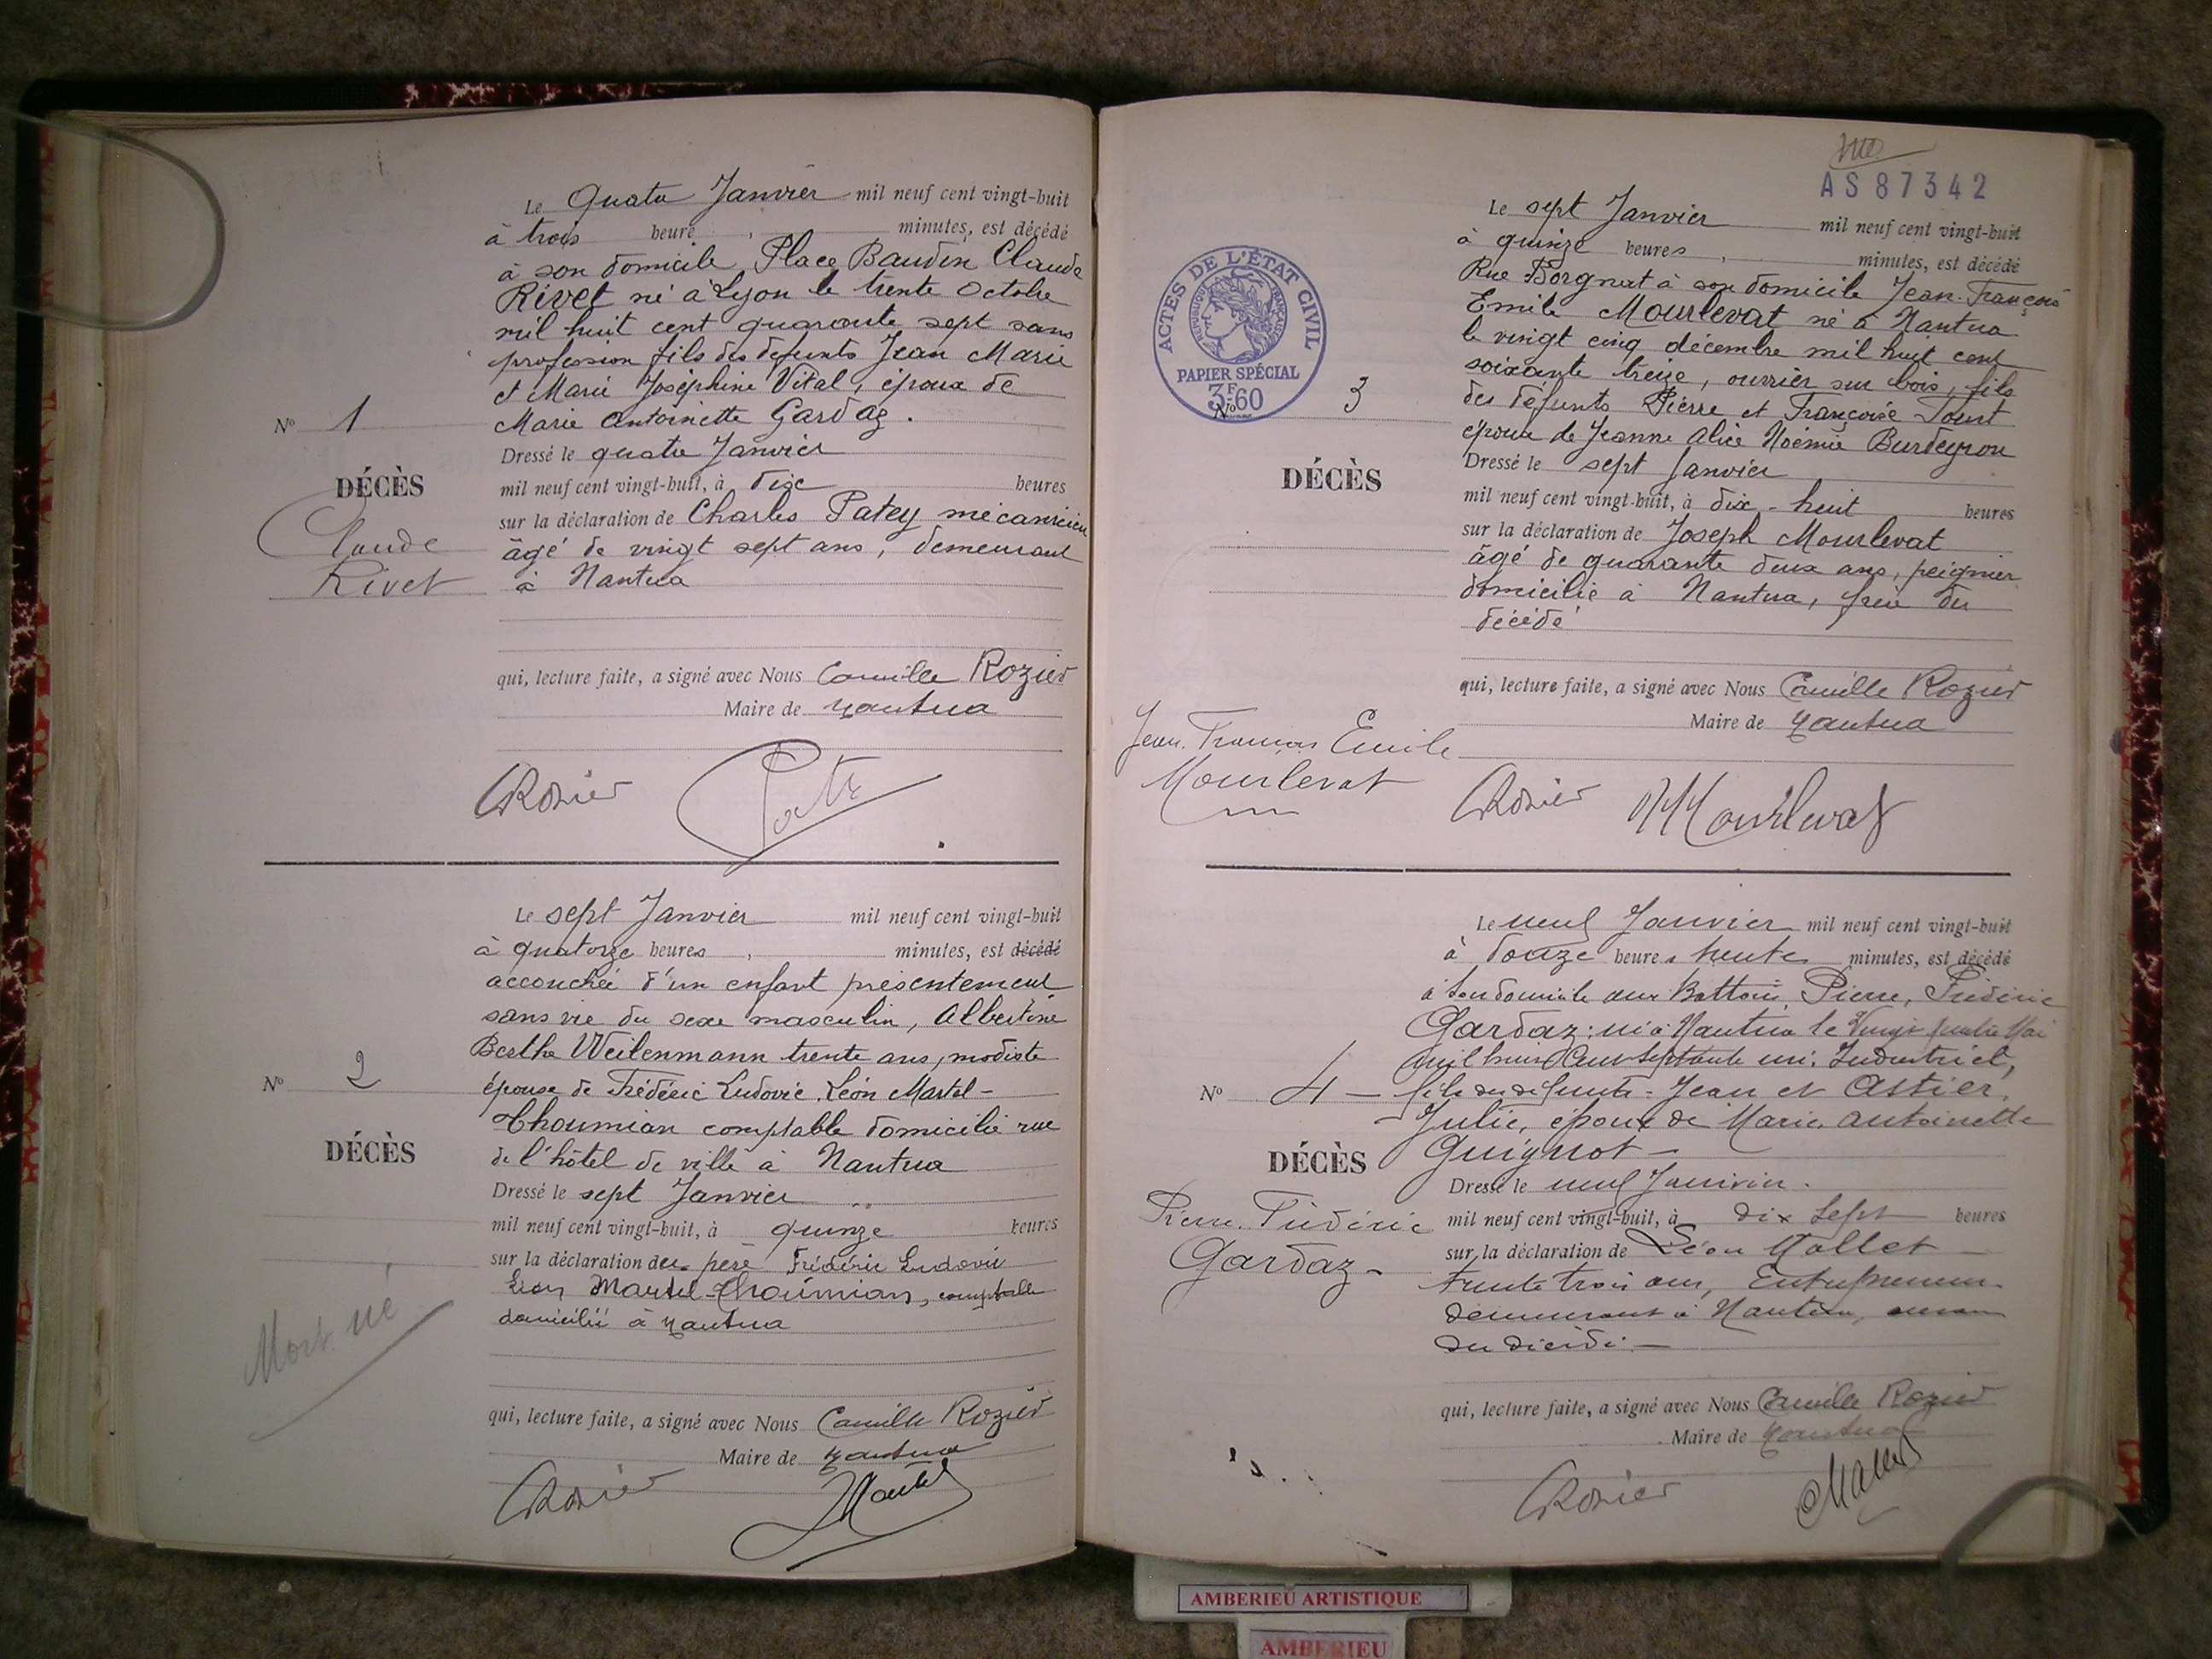 Le Quatre Janvier mil neuf cent vingt-huit
à trois heure, minutes, est décédé
à son domicile Place Baudin Claude
Rivet né à Lyon le trente Octobre
mil huit cent quarante sept sans
profession fils des defunts Jean Marie
et Marie Joséphine Vital, époux de
Marie Antoinette Gardaz.
Nº 1
Dressé le quatre Janvier
DÉCÈS
mil neuf cent vingt-huit, à dix heures
sur la déclaration de Charles Patey mécanicien
Claude
Rivet
âgé de vingt sept ans, demeurant
à Nantua
qui, lecture faite, a signé avec Nous Camille Rozier
Maire de Nantua
CRozier
Le sept Janvier mil neuf cent vingt-huit
à quatorze heures, minutes, est décédé
accouchée d'un enfant présentement
sans vie du sexe masculin, Albertine
Berthe Weitenmann trente ans, modiste
Nº 2
épouse de Frédéric Ludovic Léon Martel-
Thoumian comptable domicilié rue
de l'hôtel de ville à Nantua
DÉCÈS
Dressé le sept Janvier
mil neuf cent vingt-huit, à quinze heures
sur la déclaration du père Frédéric Ludovic
Léon Martel-Thoumian, comptable
domicilié à Nantua
Mort né
qui, lecture faite, a signé avec Nous Camille Rozier
Maire de Nantua
CRozier Martel
AS87342
ACTES DE L'ÉTAT CIVIL
RÉPUBLIQUE FRANÇAISE
PAPIER SPÉCIAL
3F60
Le sept Janvier mil neuf cent vingt-huit
à quinze heures, minutes, est décédé
Rue Borgnat à son domicile Jean-François
Emile Mourlevat né à Nantua
le vingt cinq decembre mil huit cent
soixante treize, ouvrier sur bois, fils
Nº 3
des défunts Pierre et Françoise
époux de Jeanne Alice Noémie Burdeyron
DÉCÈS
Dressé le sept Janvier
mil neuf cent vingt-huit, à dix-huit heures
sur la déclaration de Joseph Mourlevat
âgé de quarante deux ans, peignier
domicilié à Nantua, frère du
décédé
qui, lecture faite, a signé avec Nous Camille Rozier
Maire de Nantua
Jean. François Emile
Mourlevat
CRozier Mourlevat
Le neuf Janvier mil neuf cent vingt-huit
à douze heures trente minutes, est décédé
à son domicile aux Battoirs, Pierre, Frédéric
Gardaz: né à Nantua le Vingt quatre Mai
mil huit cent septante un. Industriel,
Nº 4 –
fils des défunts = Jean et Astier,
Julie, époux de Marie, Antoinette
Guignot –
DÉCÈS
Dressé le neuf Janvier.
Pierre. Frédéric
Gardaz –
mil neuf cent vingt-huit, à dix sept heures
sur la déclaration de Léon Mallet
trente trois ans, Entrepreneur
demeurant à Nantua,
du décédé. –
qui, lecture faite, a signé avec Nous Camille Rozier
Maire de Nantua
CRozier
AMBERIEU ARTISTIQUE
AMBERIEU